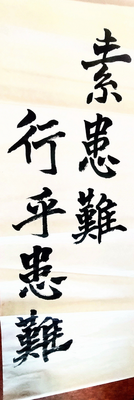 素患難
行乎患難